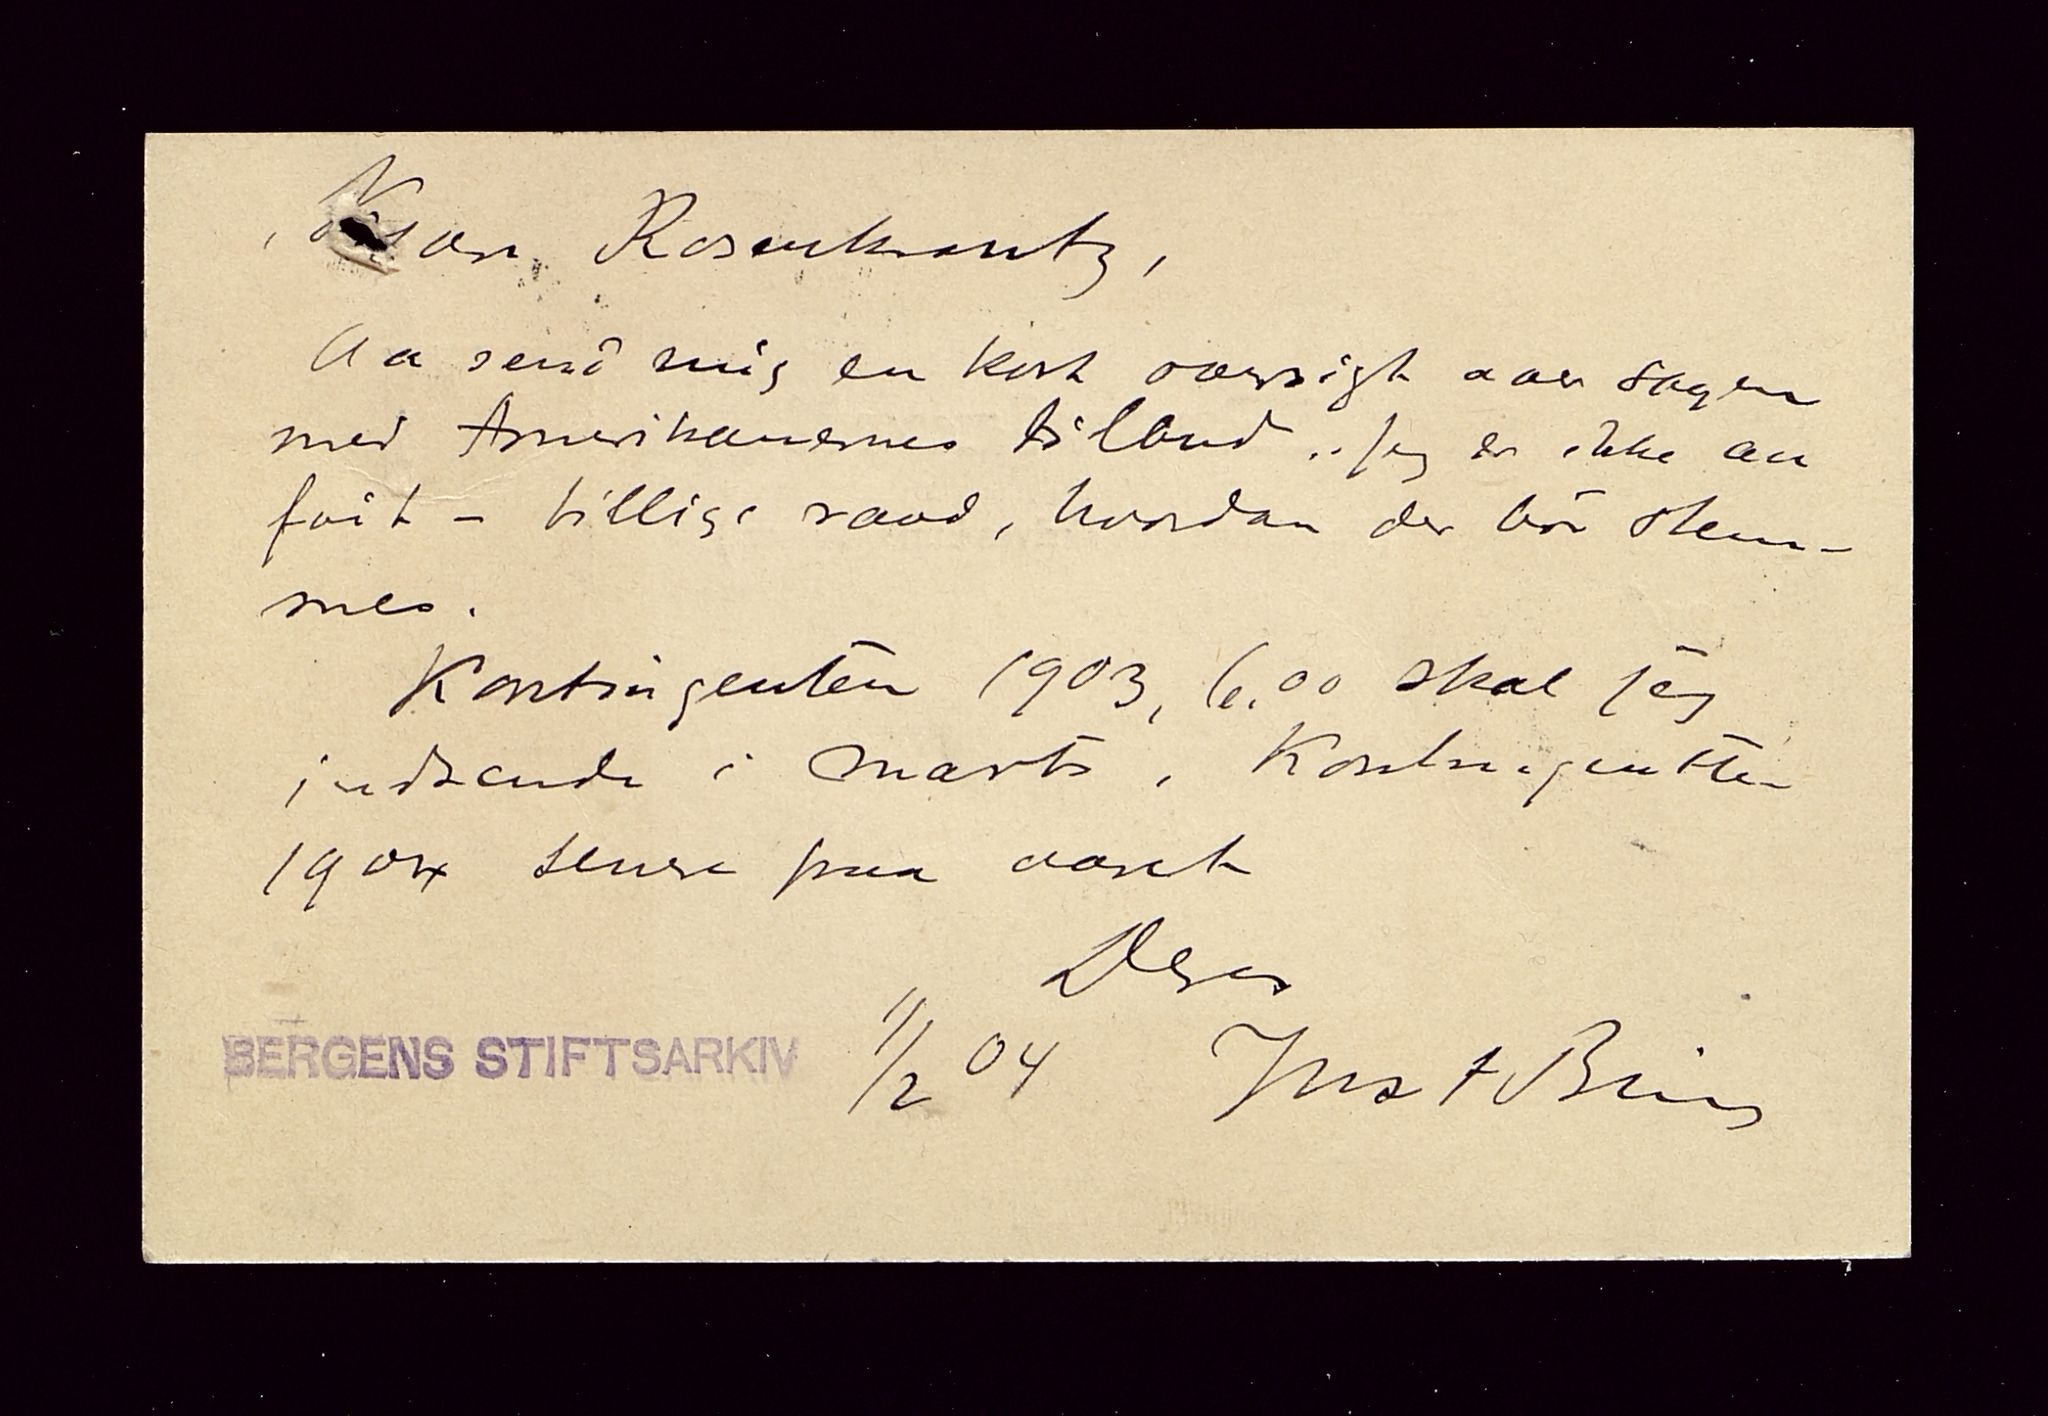 Kjære Rosenkrantz,
Aa send mig en kort oversigt over sagen
med Amerikanernes tilbud. Jeg er ikke au
fait - tillige raad, hvordan der bör stem-
mes.
Kontingenten 1903, 6.00 skal jeg
indsende i marts. Kontingenten
1904 senere paa aaret
Deres
1/2 04 Just Bing
BERGENS STIFTSARKIV